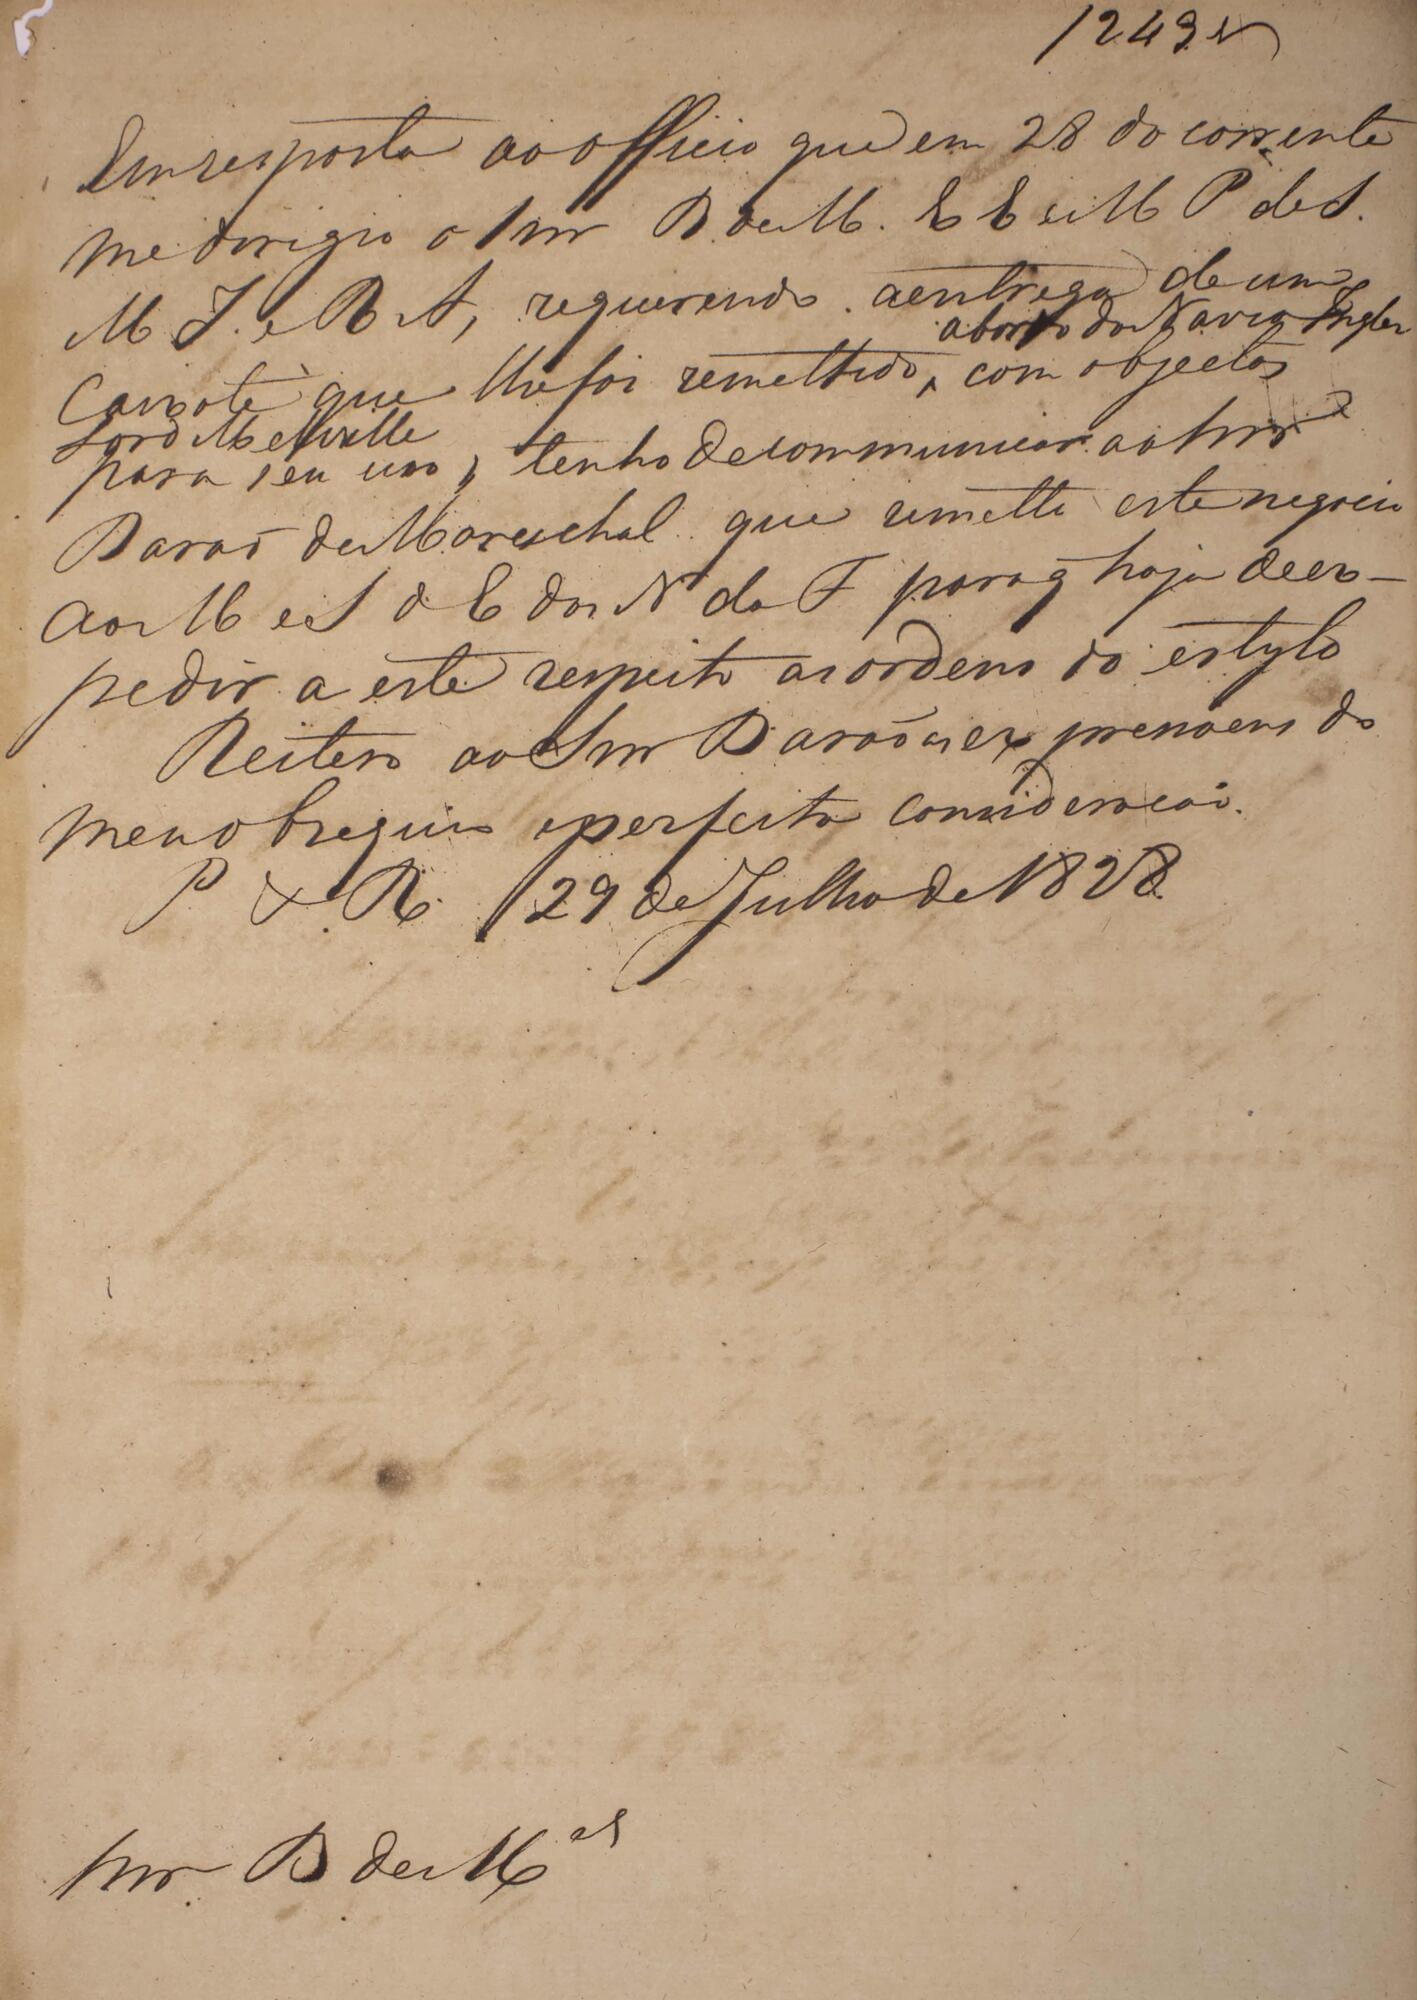 1243
Em resposta ao officio que em 28 do corrente
me dirigio o Snr B. de M. E E e M P de S.
M I. e R A, requerendo a entrega de um
abordo do Navio Inglez
Caixote que lhe foi remettido, com objectos
Lord Melville
para seu uso, tenho de communicar ao Snr
Barão de Mareschal que remetti este negocio
ao M e S d E dos N da F para q haja de ex-
pedir a este respeito as ordens do estylo
Reitero ao Snr Barão as expressoens do
meu obsequio e perfeita consideração.
P do R. 29 de Julho de 1828
Snr B de M.al